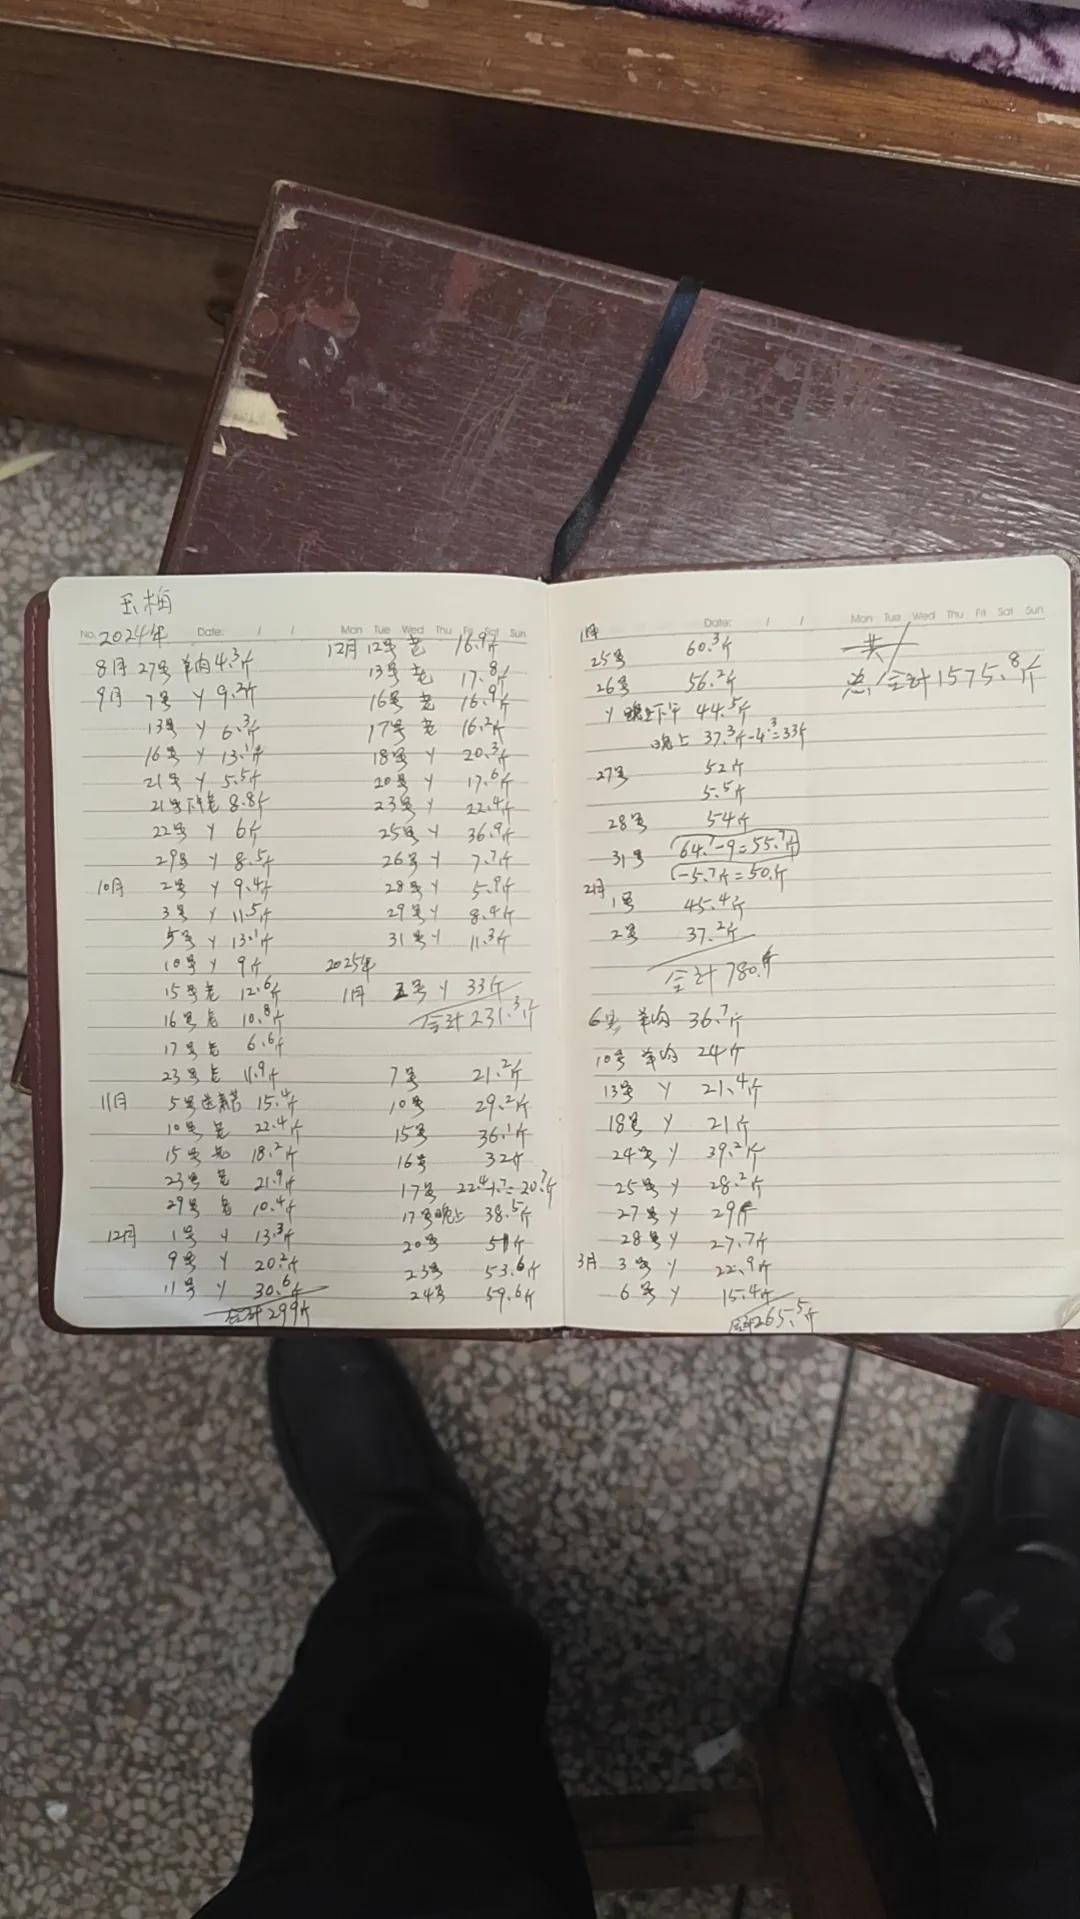 玉梅
No. 2024年 Date: / /
8月 27号 羊肉 4.3斤
9月 7号 〃 9.2斤
13号 〃 6.3斤
16号 〃 13.1斤
21号 〃 5.5斤
21号下午 8.8斤
22号 〃 6斤
29号 〃 8.5斤
10月 2号 〃 9.4斤
3号 〃 11.5斤
5号 〃 13.1斤
10号 〃 9斤
15号老 12.6斤
16号老 10.8斤
17号老 6.6斤
23号老 11.9斤
11月 5号 15.4斤
10号老 22.4斤
15号老 18.2斤
23号老 21.9斤
29号老 10.4斤
12月 1号 〃 13.3斤
9号 〃 20.2斤
11号 〃 30.6斤
合计299斤
Mon Tue Wed Thu Fri Sat Sun
12月 12号老 16.9斤
13号老 17.8斤
16号老 16.9斤
17号老 16.2斤
18号 〃 20.3斤
20号 〃 17.6斤
23号 〃 22.4斤
25号 〃 36.9斤
26号 〃 7.7斤
28号 〃 5.9斤
29号 〃 8.4斤
31号 〃 11.3斤
2025年
1月 五号 〃 33斤
合计231.3斤
7号 21.2斤
10号 29.2斤
15号 36.1斤
16号 32斤
17号 22.4-1.7=20.7斤
17号晚上 38.5斤
20号 51斤
23号 53.6斤
24号 59.6斤
1月 Date: / /
25号 60.3斤
26号 56.2斤
〃 下午 44.5斤
晚上 37.3斤-4.3=33斤
27号 52斤
5.5斤
28号 54斤
31号 64.7-9=55.7斤
-5.7斤=50斤
2月 1号 45.4斤
2号 37.2斤
合计780斤
6号 羊肉 36.7斤
10号 羊肉 24斤
13号 〃 21.4斤
18号 〃 21斤
24号 〃 39.2斤
25号 〃 28.2斤
27号 〃 29斤
28号 〃 27.7斤
3月 3号 〃 22.9斤
6号 〃 15.4斤
合计265.5斤
Mon Tue Wed Thu Fri Sat Sun
共
总合计1575.8斤